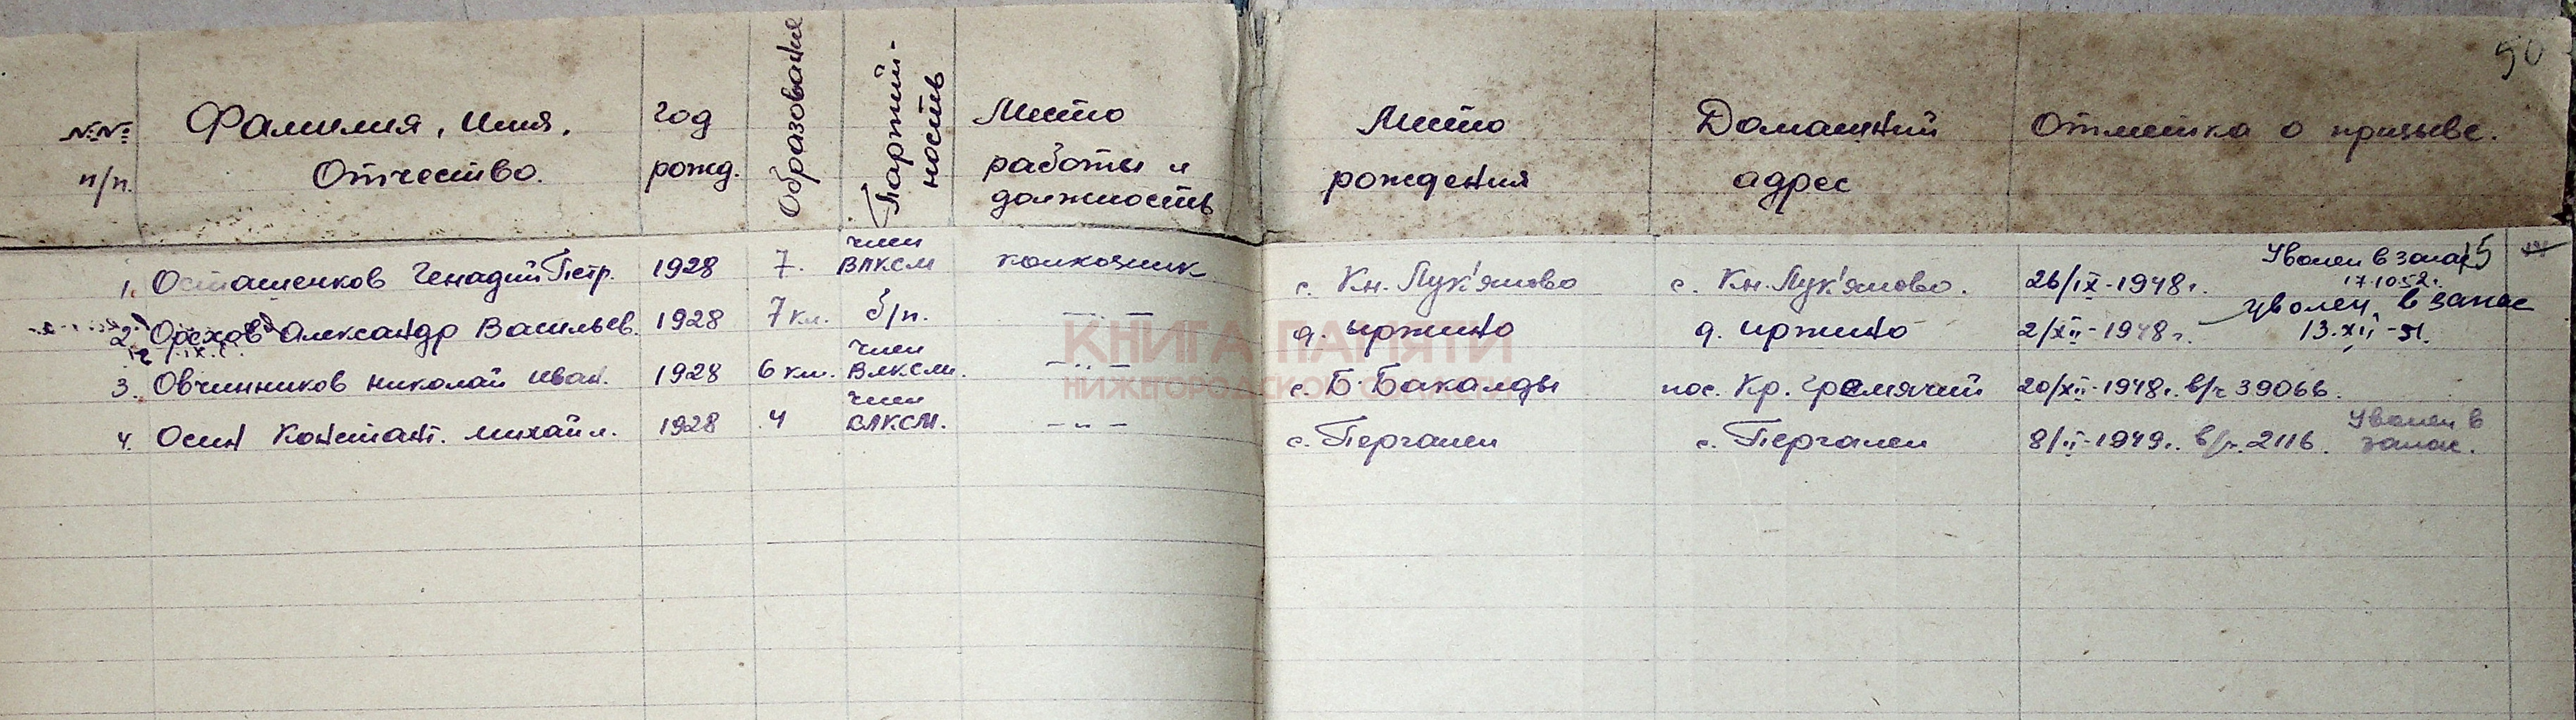 90
№№ п/п. Фамилия, Имя, Отчество. год рожд. Образование Партий-ность Место работы и должность Место рождения Домашний адрес Отметка о призыве.
1. Осташенков Генадий Петр. 1928 7. член ВЛКСМ колхозник с. Кн. Лук'яново с. Кн. Лук'яново. 26/IX-1948г. Уволен в запас 17.10.52г.
2. Орехов Александр Васильев. 1928 7 кл. б/п. —"— д. Иржино д. Иржино 2/XII-1948г. уволен в запас 13.XII-51.
3. Овчинников Николай Иван. 1928 6 кл. член ВЛКСМ. —"— с. Б. Бакалды пос. Кр. Гремячий 20/XII-1948г. в/ч 39066.
4. Осин Констант. Михайл. 1928 4 член ВЛКСМ. —"— с. Пергалеи с. Пергалеи 8/II-1949г. в/ч. 2116. Уволен в запас.
КНИГА ПАМЯТИ
НИЖЕГОРОДСКОЙ ОБЛАСТИ